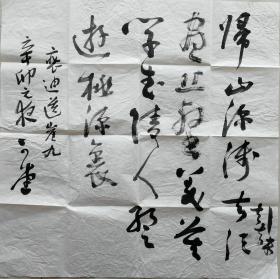 歸山深淺去須
盡丘壑美莫
學武陵人暫
遊桃源裏
裴迪送崔九
辛卯之